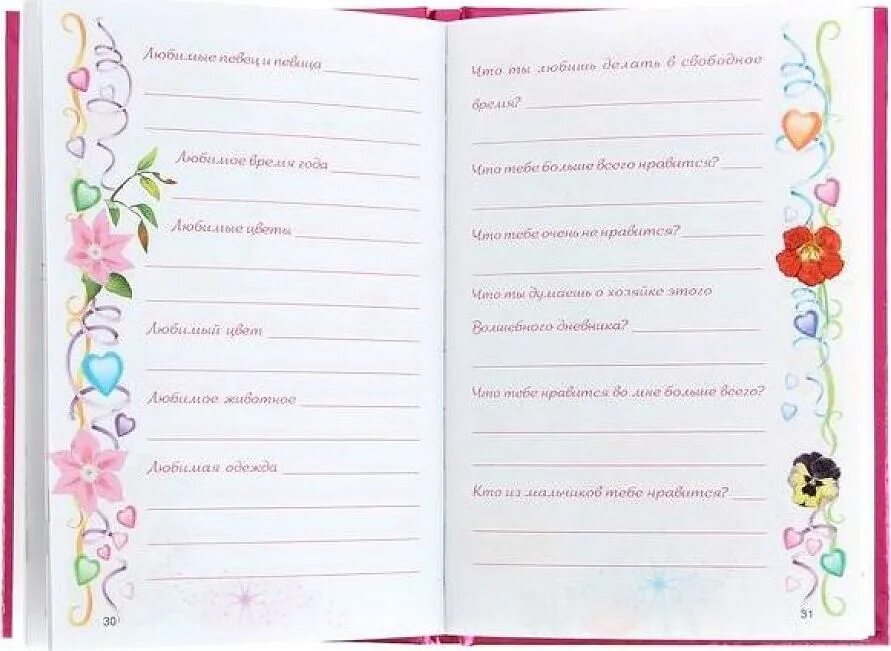 Любимые певец и певица
Любимое время года
Любимые цветы
Любимый цвет
Любимое животное
Любимая одежда
30
Что ты любишь делать в свободное
время?
Что тебе больше всего нравится?
Что тебе очень не нравится?
Что ты думаешь о хозяйке этого
Волшебного дневника?
Что тебе нравится во мне больше всего?
Кто из мальчиков тебе нравится?
31